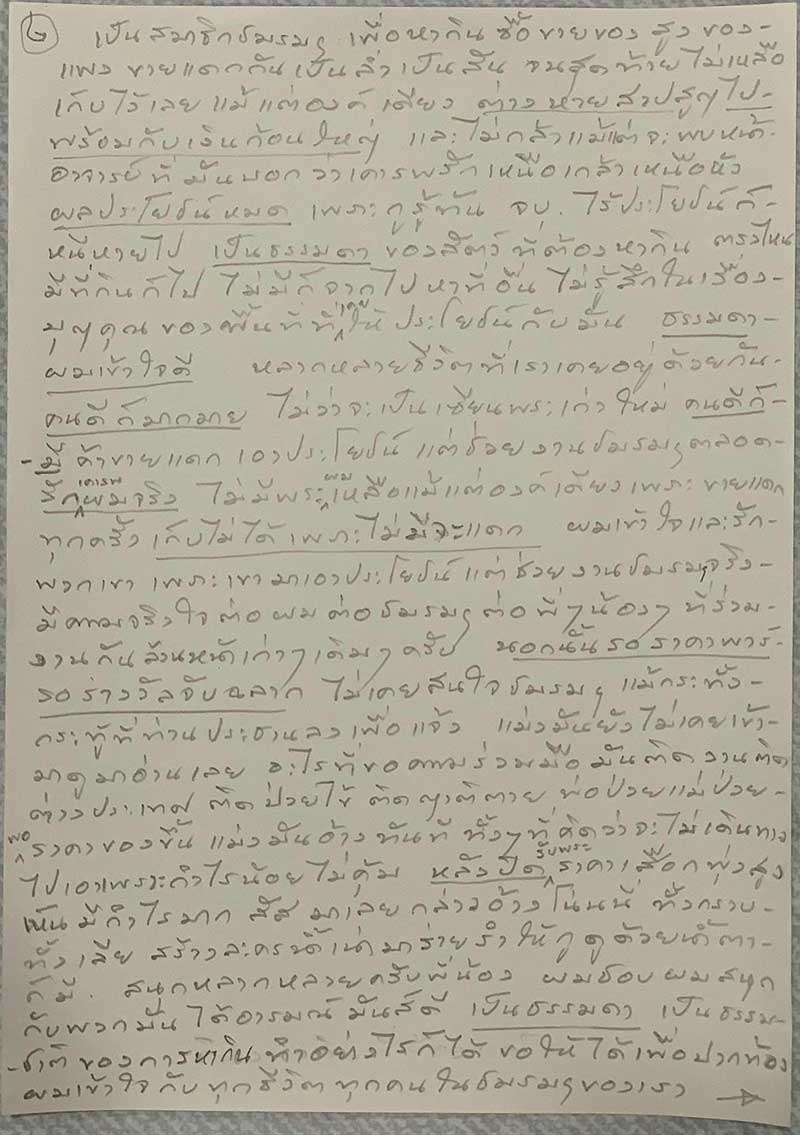 ๒
เป็นสมาชิกชมรมฯ เพื่อหากิน ซื้อขายของ สูงของ-
แพง ขายแดกกันเป็นล่ำเป็นสัน จนสุดท้ายไม่เหลือ
เก็บไว้เลย แม้แต่องค์เดียว ต่างหายสาปสูญไป-
พร้อมกับเงินก้อนใหญ่ และไม่กล้าแม้แต่จะพบหน้า
อาจารย์ที่มันบอกว่าเคารพรักเหนือเกล้าเหนือหัว
ผลประโยชน์หมด เพราะกูรู้ทัน จบ. ไร้ประโยชน์ก็
หนีหายไป เป็นธรรมดาของสัตว์ที่ต้องหากิน ตรงไหน
มีที่กินก็ไป ไม่มีก็จากไปหาที่อื่น ไม่รู้สึกในเรื่อง-
บุญคุณของพื้นที่ที่เคยให้ประโยชน์กับมัน ธรรมดา-
ผมเข้าใจดี หลากหลายชีวิตที่เราเคยอยู่ด้วยกัน-
คนดีก็มากมาย ไม่ว่าจะเป็นเซียนพระเก่าใหม่ คนดีก็-
-มี ค้าขายแดก เอาประโยชน์ แต่ช่วยงานชมรมฯตลอด-
รักเคารพผมจริง ไม่มีพระผมเหลือแม้แต่องค์เดียวเพราะขายแดก
ทุกครั้ง เก็บไม่ได้เพราะไม่มีจะแดก ผมเข้าใจและรัก-
พวกเขา เพราะเขามาเอาประโยชน์แต่ช่วยงานชมรมฯจริง-
มีความจริงใจต่อผมต่อชมรมฯต่อพี่ๆน้องๆ ที่ร่วม-
งานกันล้วนหน้าเก่าๆเดิมๆครับ นอกนั้นรอราคาพาร์-
รอรางวัลจับฉลาก ไม่เคยสนใจชมรมฯ แม้กระทั่ง-
กระทู้ที่ท่านประธานลงเพื่อแจ้ง แม่งมันยังไม่เคยเข้า-
มาดูมาอ่านเลย อะไรที่ขอความร่วมมือ มันติดงานติด
ต่างประเทศ ติดป่วยไข้ ติดญาติตาย พ่อป่วยแม่ป่วย-
พอราคาของขึ้น แม่งมันอ้างทันที ทั้งๆที่คิดว่าจะไม่เดินทาง
ไปเอาเพราะกำไรน้อยไม่คุ้ม หลังปิดรับพระราคาเสือกพุ่งสูง
เห็นมีกำไรมาก สัส มาเลย กล่าวอ้างโน่นนี่ ทั้งกราบ-
ทั้งเลีย สร้างละครน้ำเน่ามาร่ายรำให้กูดูด้วยน้ำตา-
ก็มี. สนุกหลากหลายครับพี่น้อง ผมชอบผมสนุก
กับพวกมัน ได้อารมณ์มันส์ดี เป็นธรรมดา เป็นธรรม-
-ชาติของการหากิน ทำอย่างไรก็ได้ ขอให้ได้เพื่อปากท้อง
ผมเข้าใจกับทุกชีวิตทุกคนในชมรมฯของเรา →